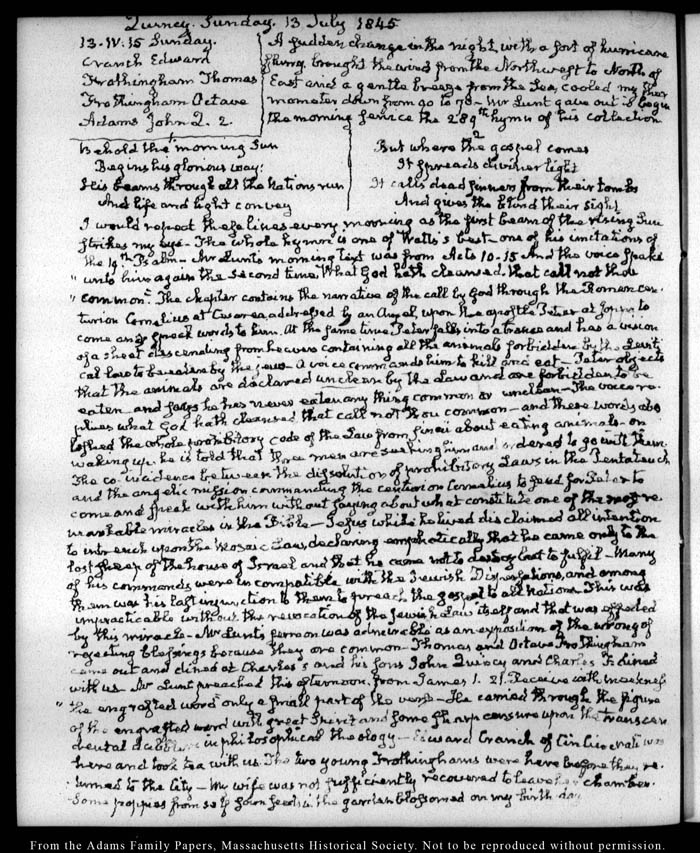 Quincy. Sunday. 13 July 1845
13. IV:15 Sunday.
Cranch Edward
Frothingham Thomas
Frothingham Octave
Adams John Q. 2.
A sudden change in the night, with a sort of hurricane
flurry brought the wind from the Northwest to North of
East and a gentle breeze from the Sea, cooled my ther
mometer down from 90 to 70 - Mr Lunt gave out to begin
the morning service the 289th hymn of his collection
1
Behold the morning Sun
Begins his glorious way:
His beams through all the Nations run
And life and light convey
2
But where the gospel comes
It spreads diviner light
It calls dead sinners from their tombs
And gives the blind their sight
I would repeat these lines every morning as the first beam of the rising Sun
strikes my eye - The whole hymn is one of Watts's best - one of his imitations of
the 19th Psalm - Mr Lunt's morning text was from Acts 10.15 And the voice spake
" unto him again the second time, What God hath cleansed, that call not thou
" common." The chapter contains the narrative of the call by God through the Roman cen-
turion Cornelius at Caesarea, addressed by an Angel, upon the apostle Peter at Joppa, to
come and speak words to him. At the same time Peter falls into a trance and has a vision
of a sheet descending from heaven containing all the animals forbidden by the Leviti
cal law to be eaten by the Jews - A voice commands him to kill and eat - Peter objects
that the animals are declared unclean by the Law and are forbidden to be
eaten - and says he has never eaten any thing common or unclean - The voice re-
plies what God hath cleansed that call not thou common - and these words abo
lished the whole prohibitory code of the Law from Sinai about eating animals - on
waking up he is told that three men are seeking him and ordered to go with them.
The co-incidence between the dissolution of prohibitory Laws in the Pentateuch
and the angelic mission commanding the centurion Cornelius to send for Peter to
come and speak with him without saying about what constitute one of the most re-
markable miracles in the Bible - Jesus while he lived disclaimed all intention
to intrench upon the Mosaic Law, declaring emphatically that he came only to the
lost sheep of the house of Israel and that he came not to destroy but to fulfil - Many
of his commands were incompatible with the Jewish Dispensations, and among
them was his last injunction to them to preach the gospel to all nations. This was
impracticable without the revocation of the Jewish Law itself and that was effected
by this miracle - Mr Lunt's sermon was admirable as an exposition of the wrong of
rejecting blessings because they are common - Thomas and Octave Frothingham
came out and dined at Charles's and his sons John Quincy and Charles F. dined
with us - Mr Lunt preached this afternoon, from James 1. 21. Receive with meekness
" the engrafted word" only a small part of the verse - He carried through the figure
of the engrafted word with great spirit and some sharp censure upon the transcen
dental in philosophical theology - Edward Cranch of Cincinnati was
here and took tea with us. The two young Frothinghams were here before they re-
turned to the City - My wife was not sufficiently recovered to leave her chamber.
Some poppies from self sown seeds in the garden blossomed on my birth day
From the Adams Family Papers, Massachusetts Historical Society. Not to be reproduced without permission.